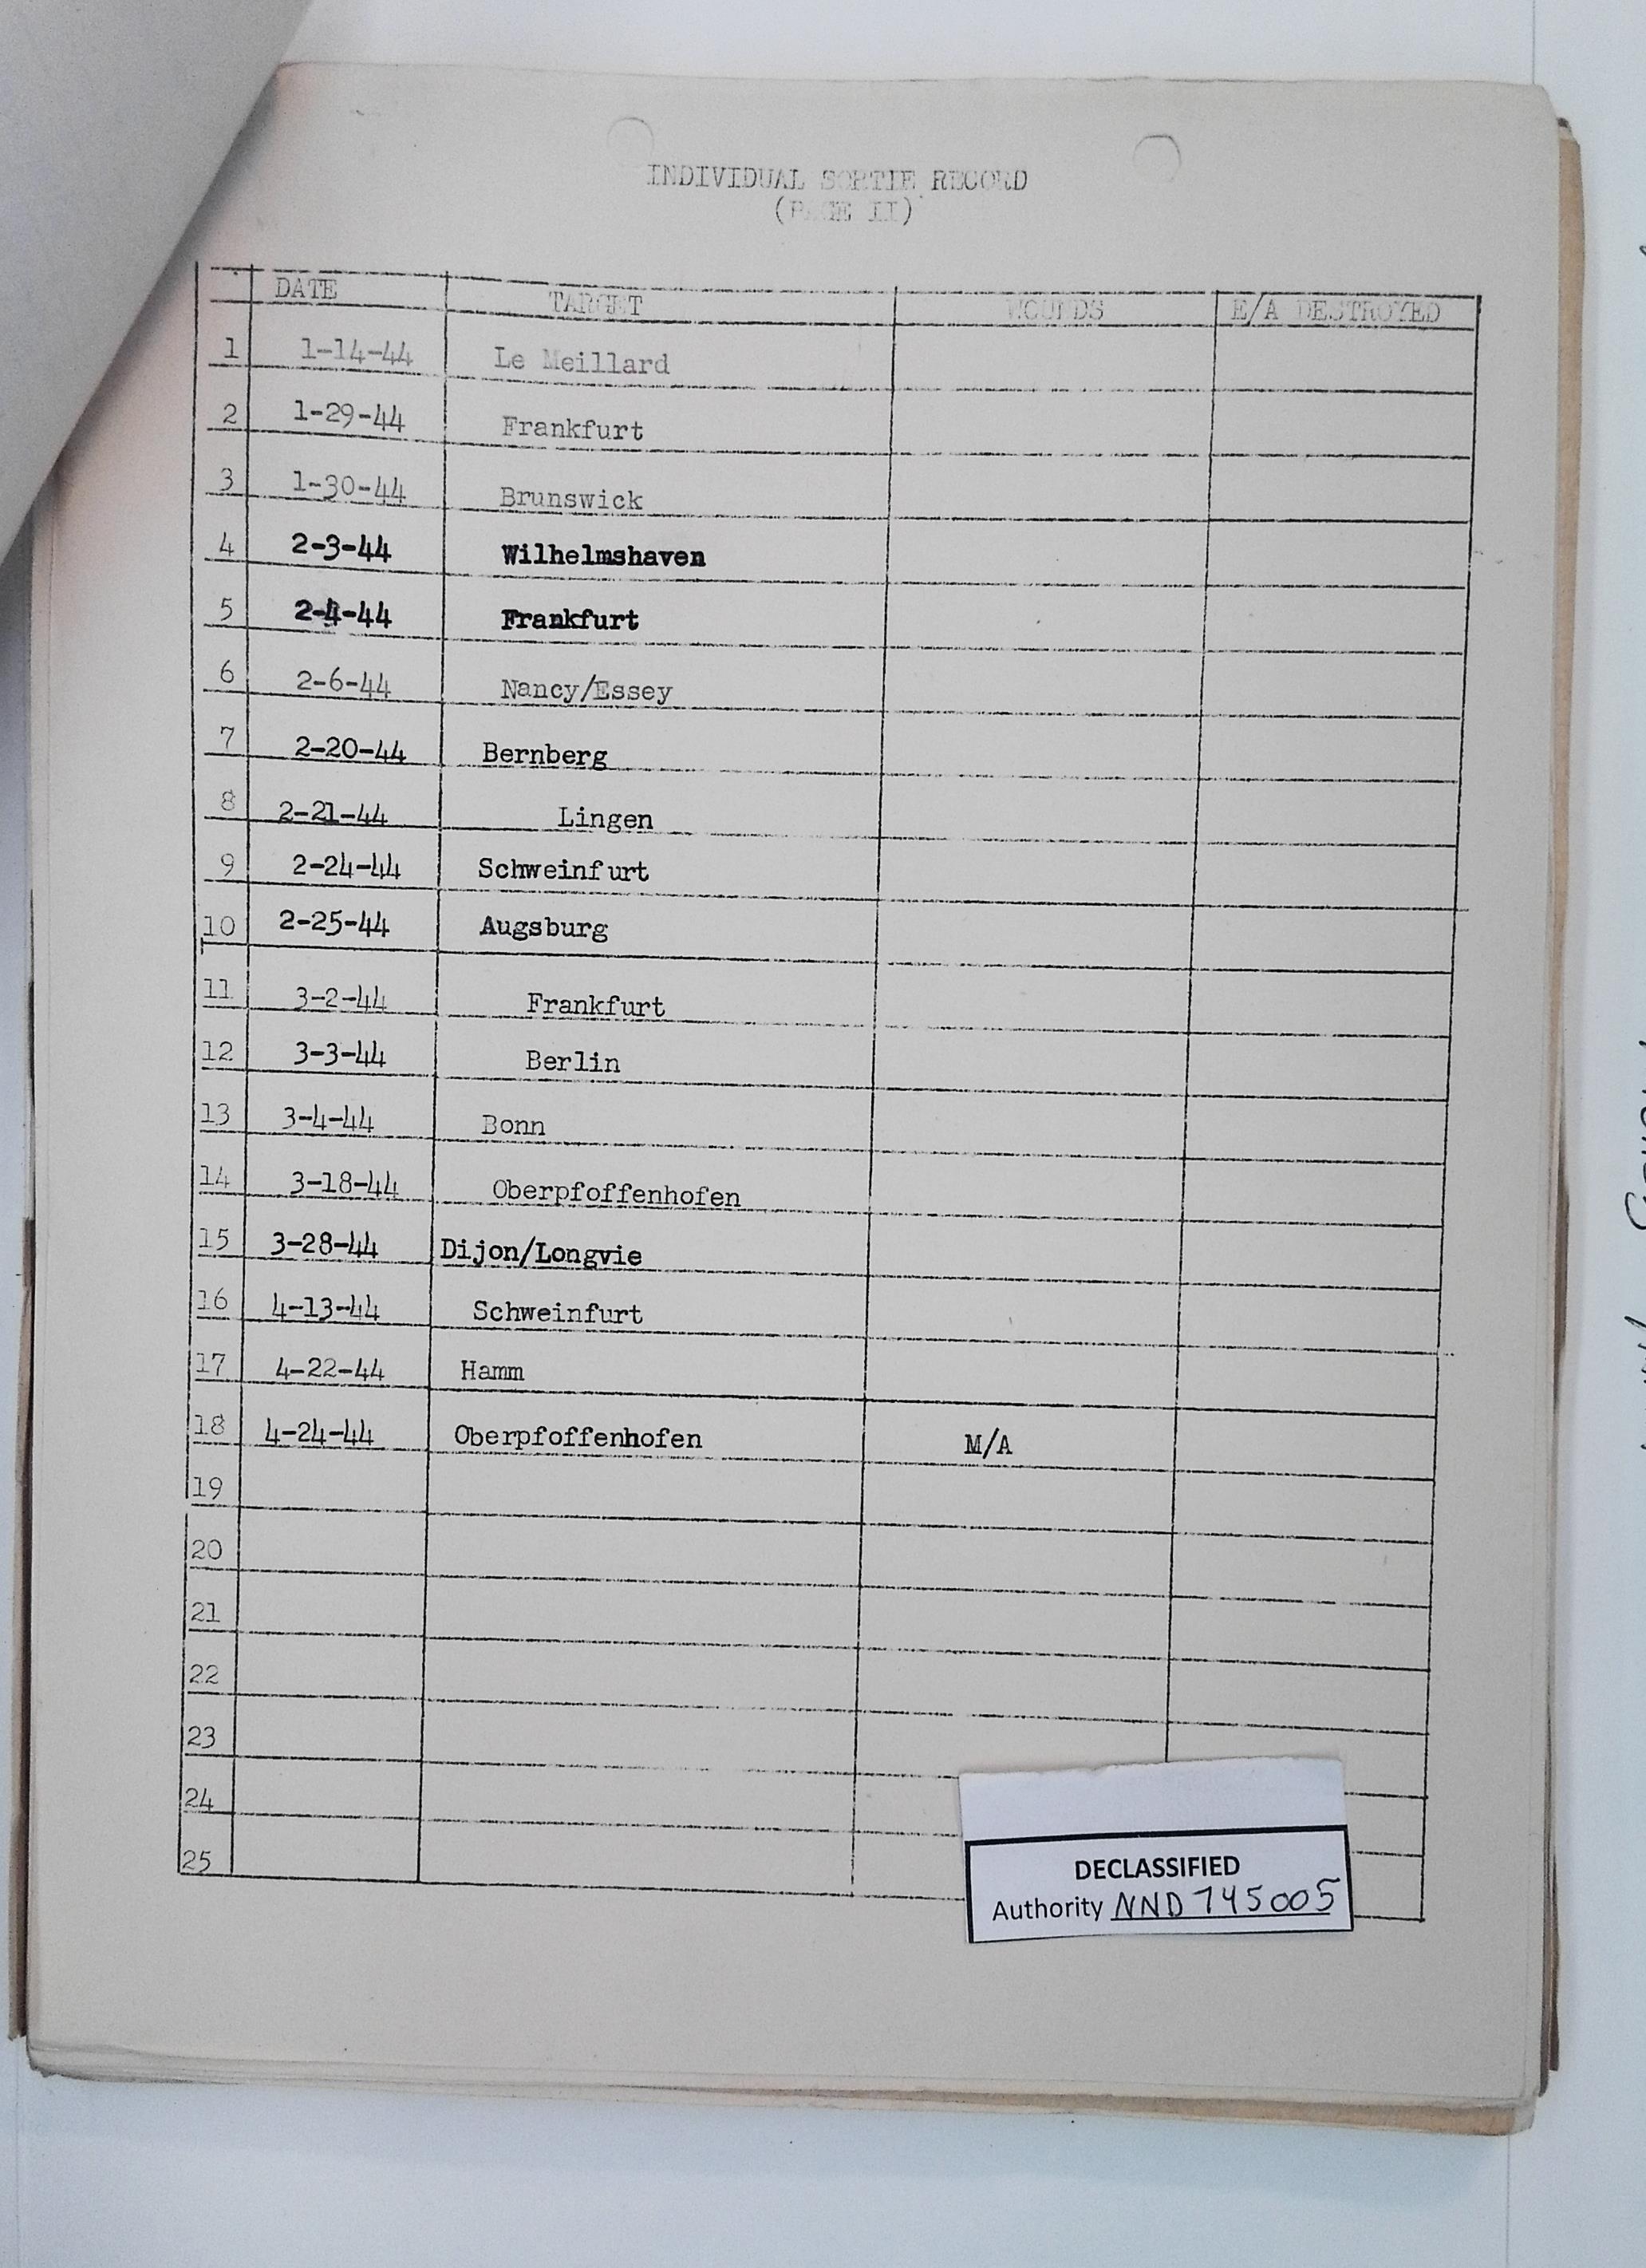 INDIVIDUAL SORTIE RECORD
(PAGE II)
DATE TARGET WOUNDS E/A DESTROYED
1 1-14-44 Le Meillard
2 1-29-44 Frankfurt
3 1-30-44 Brunswick
4 2-3-44 Wilhelmshaven
5 2-4-44 Frankfurt
6 2-6-44 Nancy/Essey
7 2-20-44 Bernberg
8 2-21-44 Lingen
9 2-24-44 Schweinfurt
10 2-25-44 Augsburg
11 3-2-44 Frankfurt
12 3-3-44 Berlin
13 3-4-44 Bonn
14 3-18-44 Oberpfoffenhofen
15 3-28-44 Dijon/Longvie
16 4-13-44 Schweinfurt
17 4-22-44 Hamm
18 4-24-44 Oberpfoffenhofen M/A
19
20
21
22
23
24
25
DECLASSIFIED
Authority NND 745005